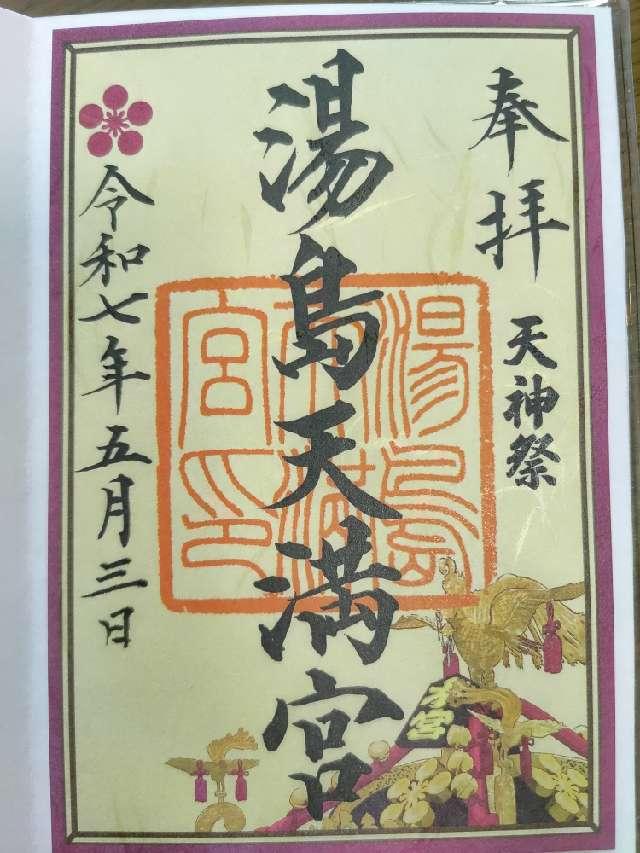 奉拝
天神祭
湯島天満宮
湯島天満宮印
本宮
令和七年五月三日